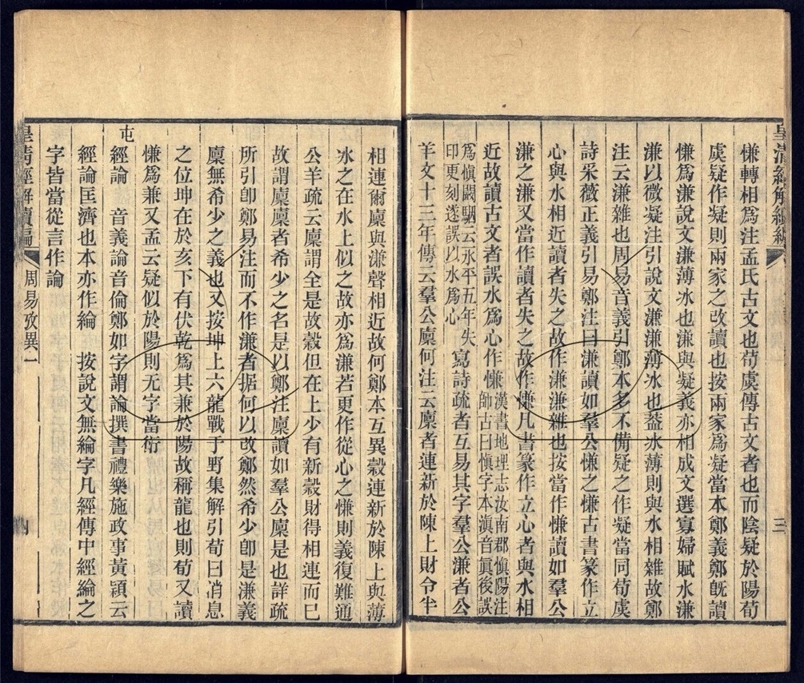 皇清經解續編
三
慊轉相爲注孟氏古文也荀虞傳古文者也而陰疑於陽荀
虞疑作凝則兩家之改讀也按兩家爲疑當本鄭義鄭旣讀
慊爲溓說文溓薄冰也溓與凝義亦相成文選寡婦賦水溓
溓以微凝注引說文溓溓薄冰也葢冰薄則與水相雜故鄭
注云溓雜也周易音義引鄭本多不備疑之作凝當同荀虞
詩采薇正義引易鄭注曰溓讀如羣公慊之慊古書篆作立
心與水相近讀者失之故作溓溓雜也按當作慊讀如羣公
溓之溓又當作讀者失之故作慊凡書篆作立心者與水相
近故讀古文者誤水爲心作慊漢書地理志汝南郡愼陽注
師古曰愼字本滇音眞後誤
爲愼闞駰云永平五年失
印更刻遂誤以水爲心
寫詩疏者互易其字羣公溓者公
羊文十三年傳云羣公廩何注云廩者連新於陳上財令半
相連爾廩與溓聲相近故何鄭本互異榖連新於陳上與薄
冰之在水上似之故亦爲溓若更作從心之慊則義復難通
公羊疏云廩謂全是故榖但在上少有新榖財得相連而已
故謂廩廩者希少之名是以鄭注廩讀如羣公廩是也詳疏
所引卽鄭易注而不作溓者据何以改鄭然希少卽是溓義
廩無希少之義也又按坤上六龍戰于野集解引荀曰消息
之位坤在於亥下有伏乾爲其兼於陽故稱龍也則荀又讀
慊爲兼又孟云疑似於陽則无字當衍
屯
經論　音義論音倫鄭如字謂論撰書禮樂施政事黃穎云
經論匡濟也本亦作綸　按說文無綸字凡經傳中經綸之
字皆當從言作論
皇清經解續編
周易攷異一